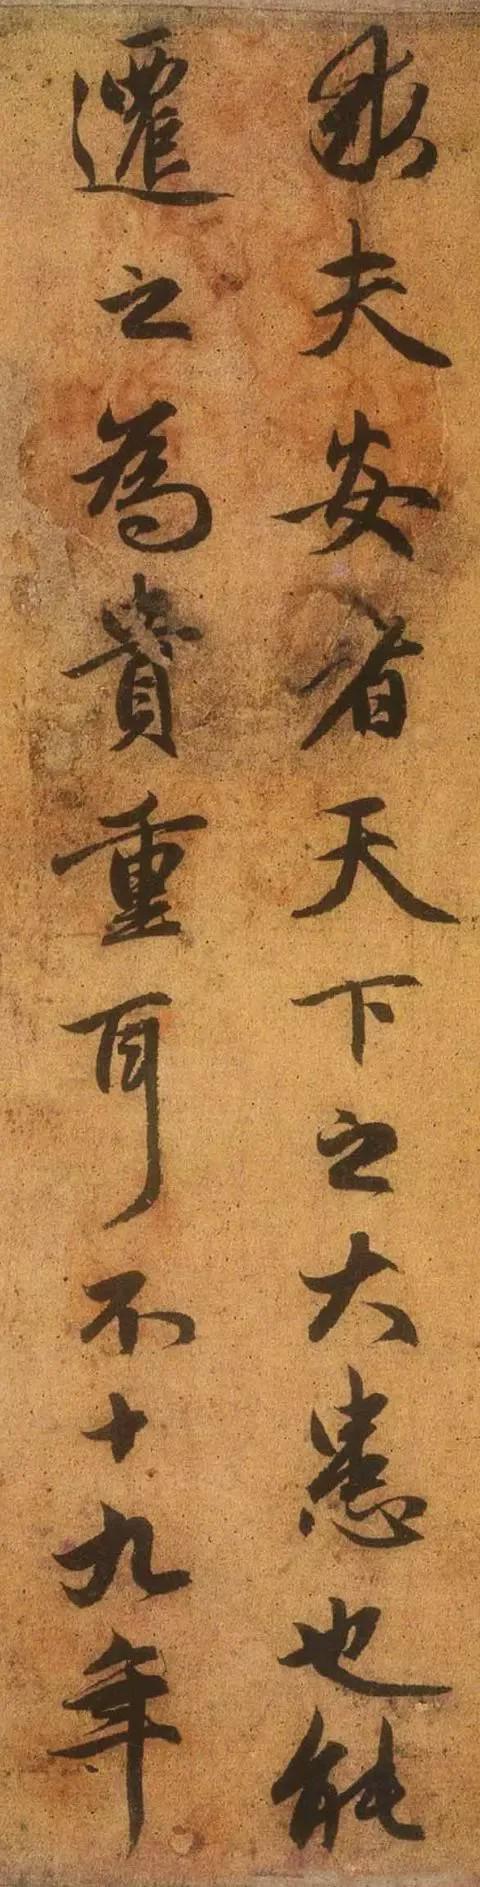 求夫安者天下之大患也能
遷之為貴重耳不十九年